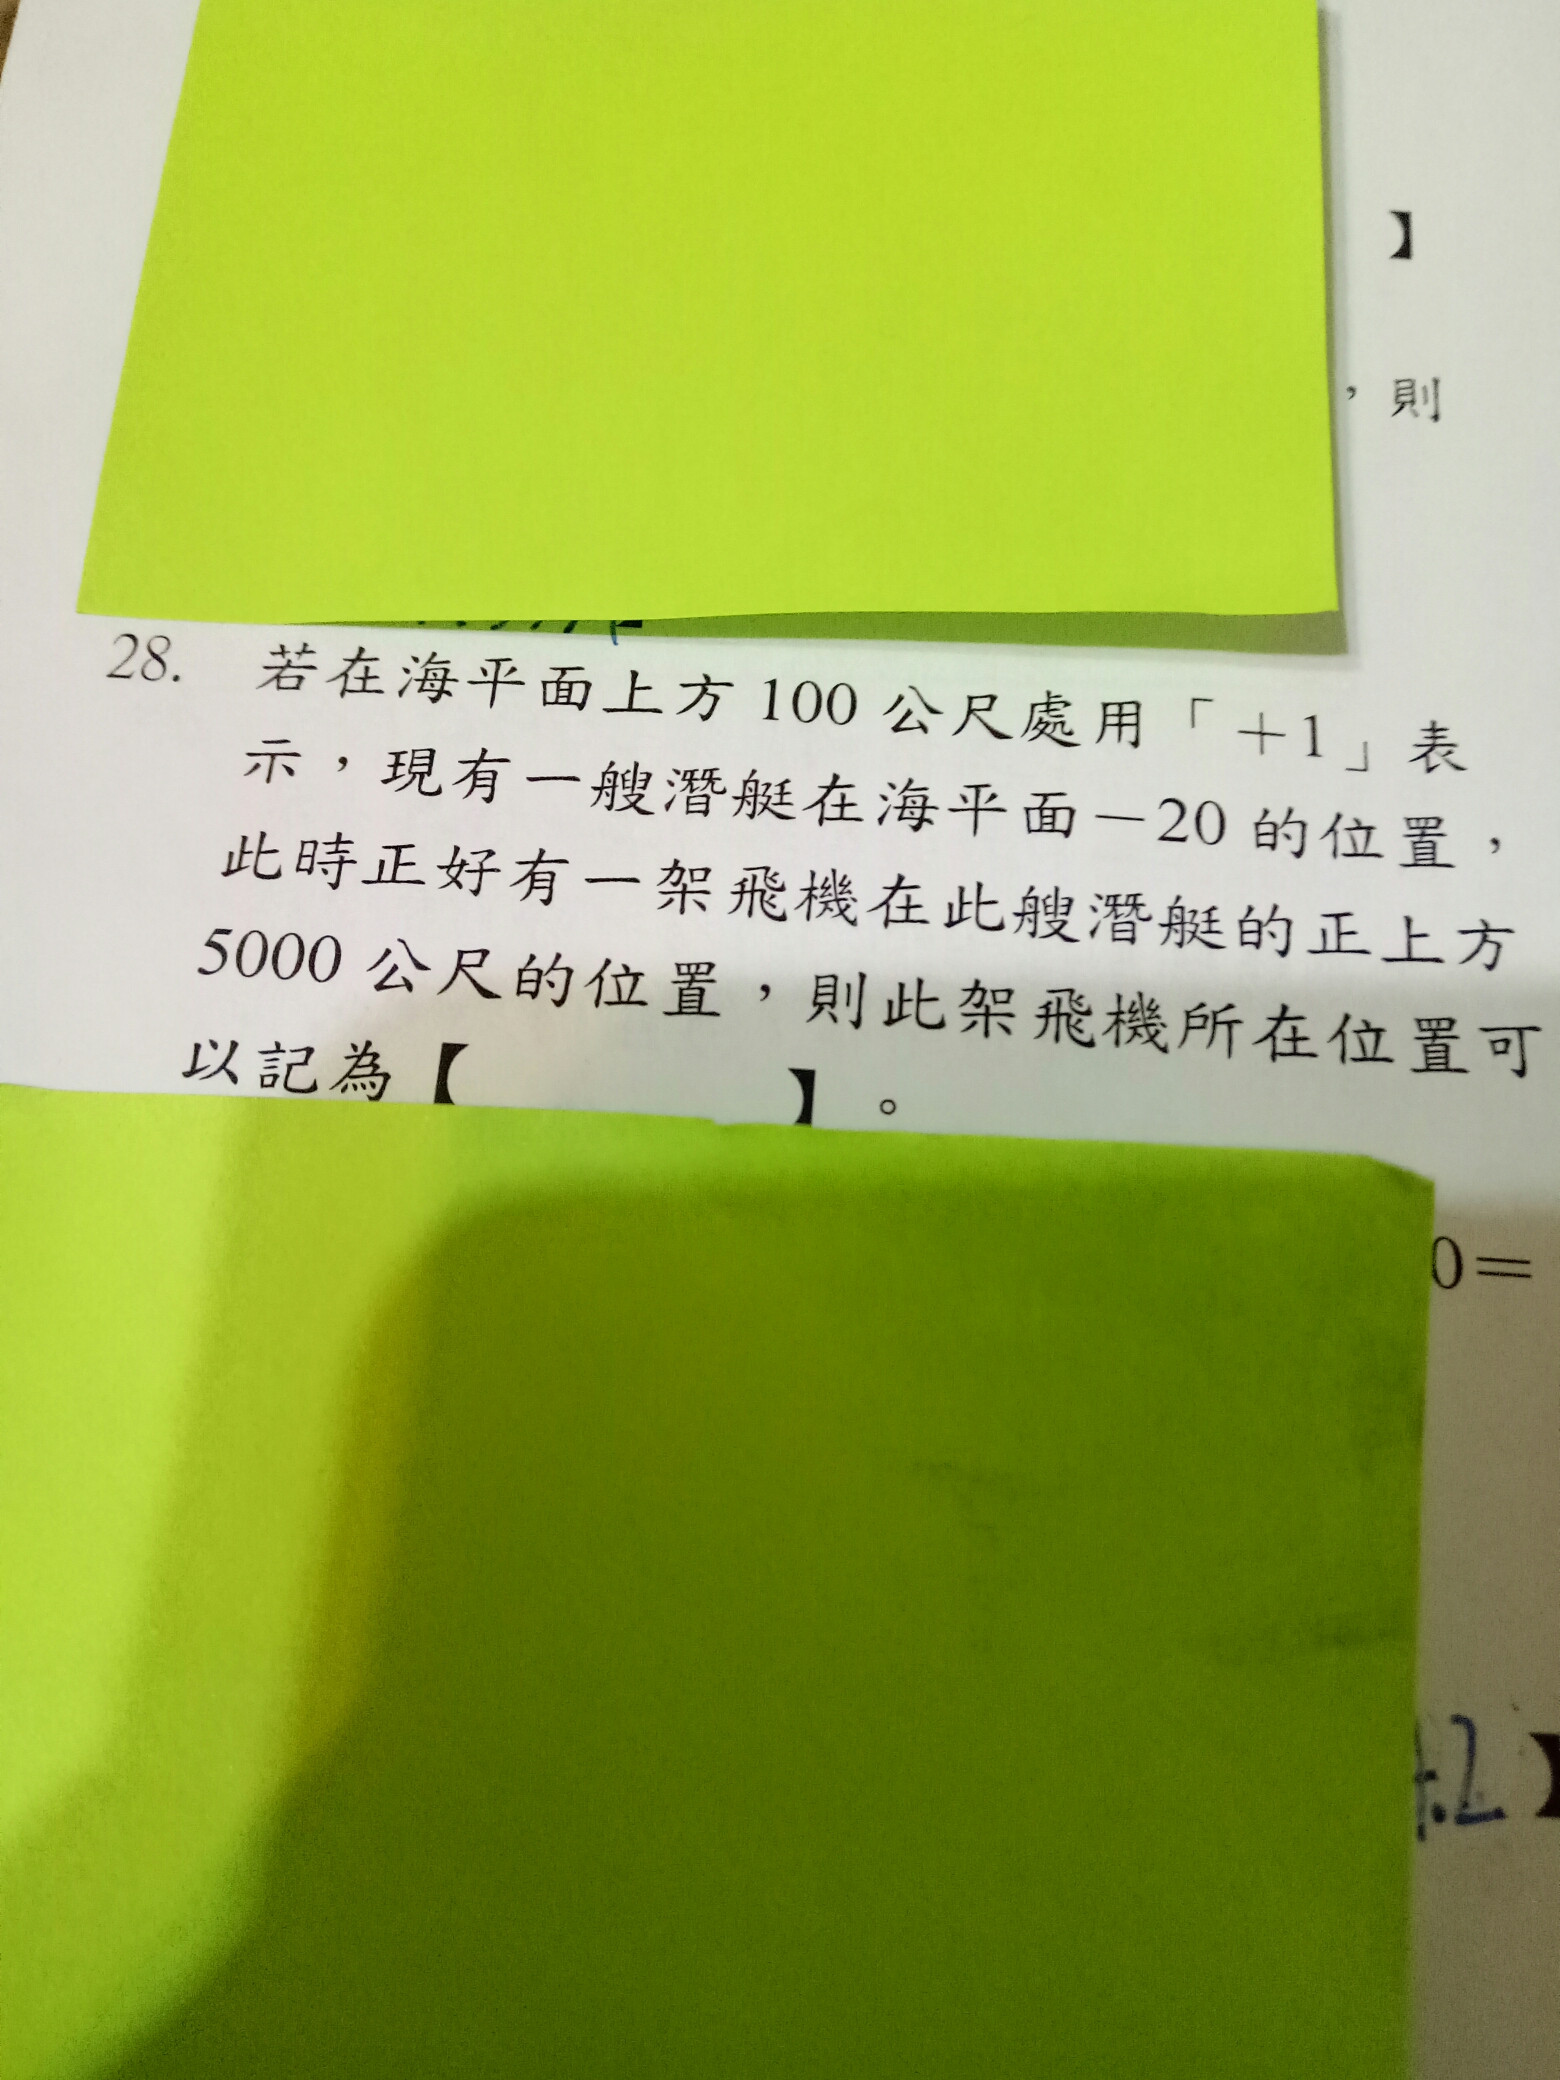 】
，則
28. 若在海平面上方100公尺處用「＋1」表
示，現有一艘潛艇在海平面－20的位置，
此時正好有一架飛機在此艘潛艇的正上方
5000公尺的位置，則此架飛機所在位置可
以記為【 】。
0＝
.2】